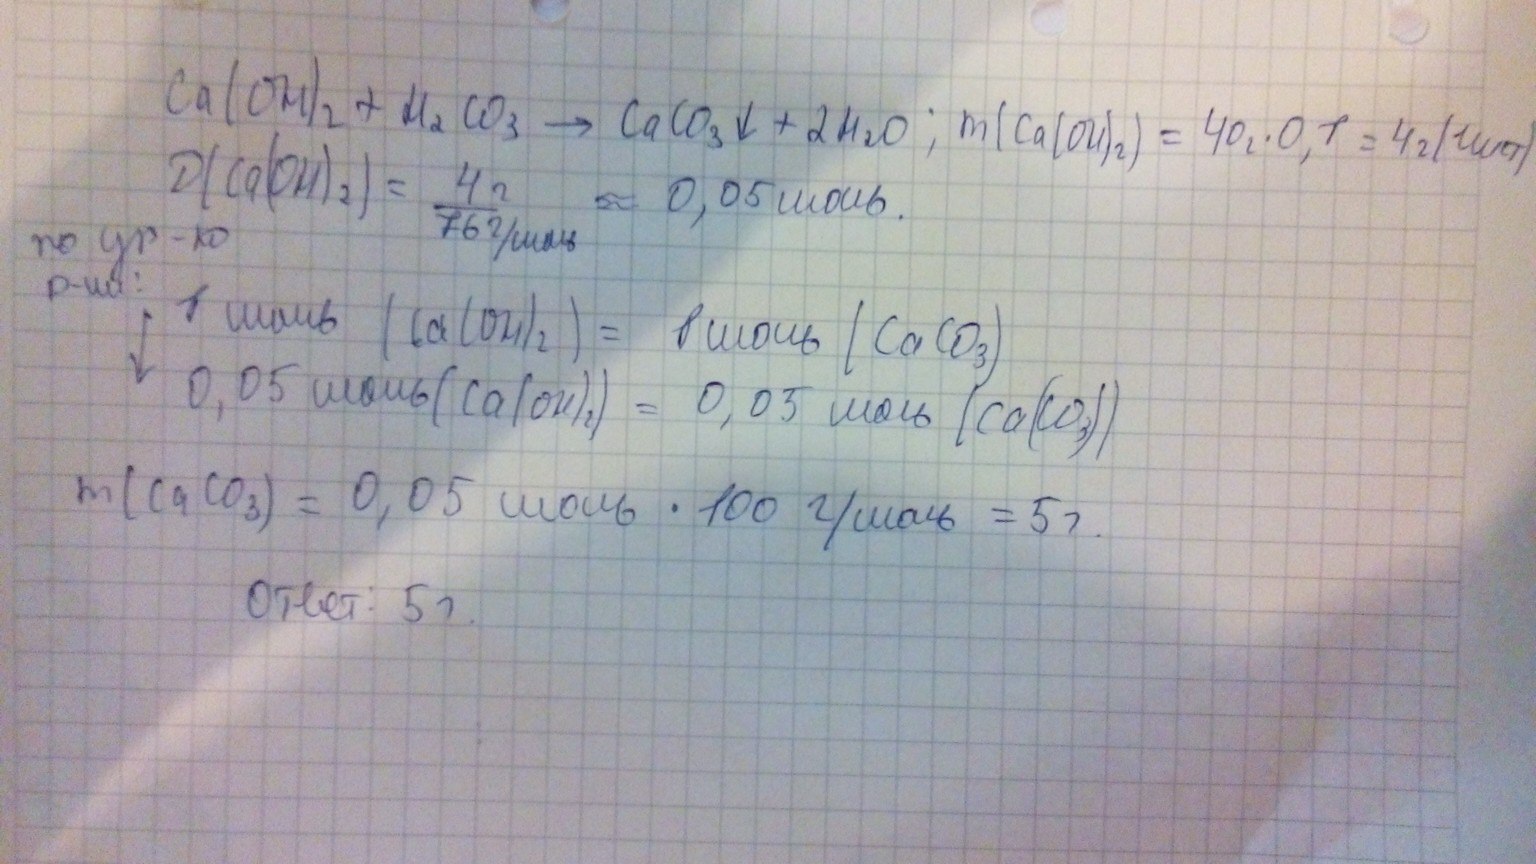 Ca(OH)₂ + H₂CO₃ → CaCO₃↓ + 2H₂O; m(Ca(OH)₂) = 40г·0,1 = 4г
(Ca(OH)₂) = 4г / 76г/моль ≈ 0,05 моль.
по ур-ю
р-ии:
↓ 1 моль (Ca(OH)₂) = 1 моль (CaCO₃)
0,05 моль (Ca(OH)₂) = 0,05 моль (Ca(CO₃))
m(CaCO₃) = 0,05 моль · 100 г/моль = 5г.
Ответ: 5г.